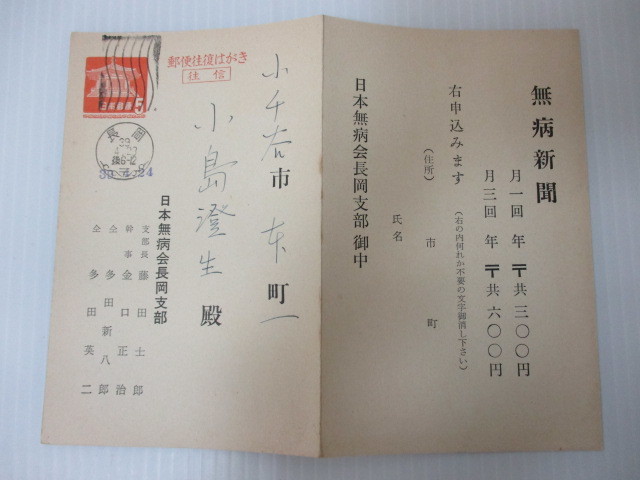 無病新聞
月一回 年 〒共 三〇〇円
月三回 年 〒共 六〇〇円
右申込みます (右の内何れか不要の文字御消し下さい)
(住所) 市 町
氏名
日本無病会長岡支部 御中
郵便往復はがき
往信
日本郵便
5
長岡
39 4 24
小千谷市 本町一
小島澄生殿
日本無病会長岡支部
支部長 藤田士郎
幹事 金口正治
仝 多田新八郎
仝 多田英二